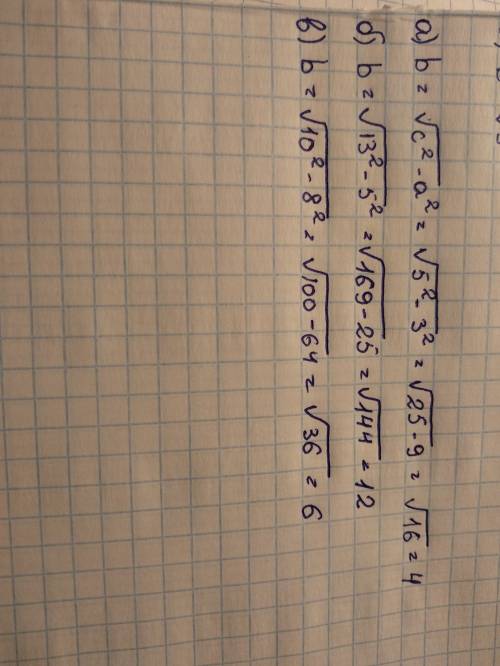 а) b = √c² - a² = √5² - 3² = √25 - 9 = √16 = 4
б) b = √13² - 5² = √169 - 25 = √144 = 12
в) b = √10² - 8² = √100 - 64 = √36 = 6